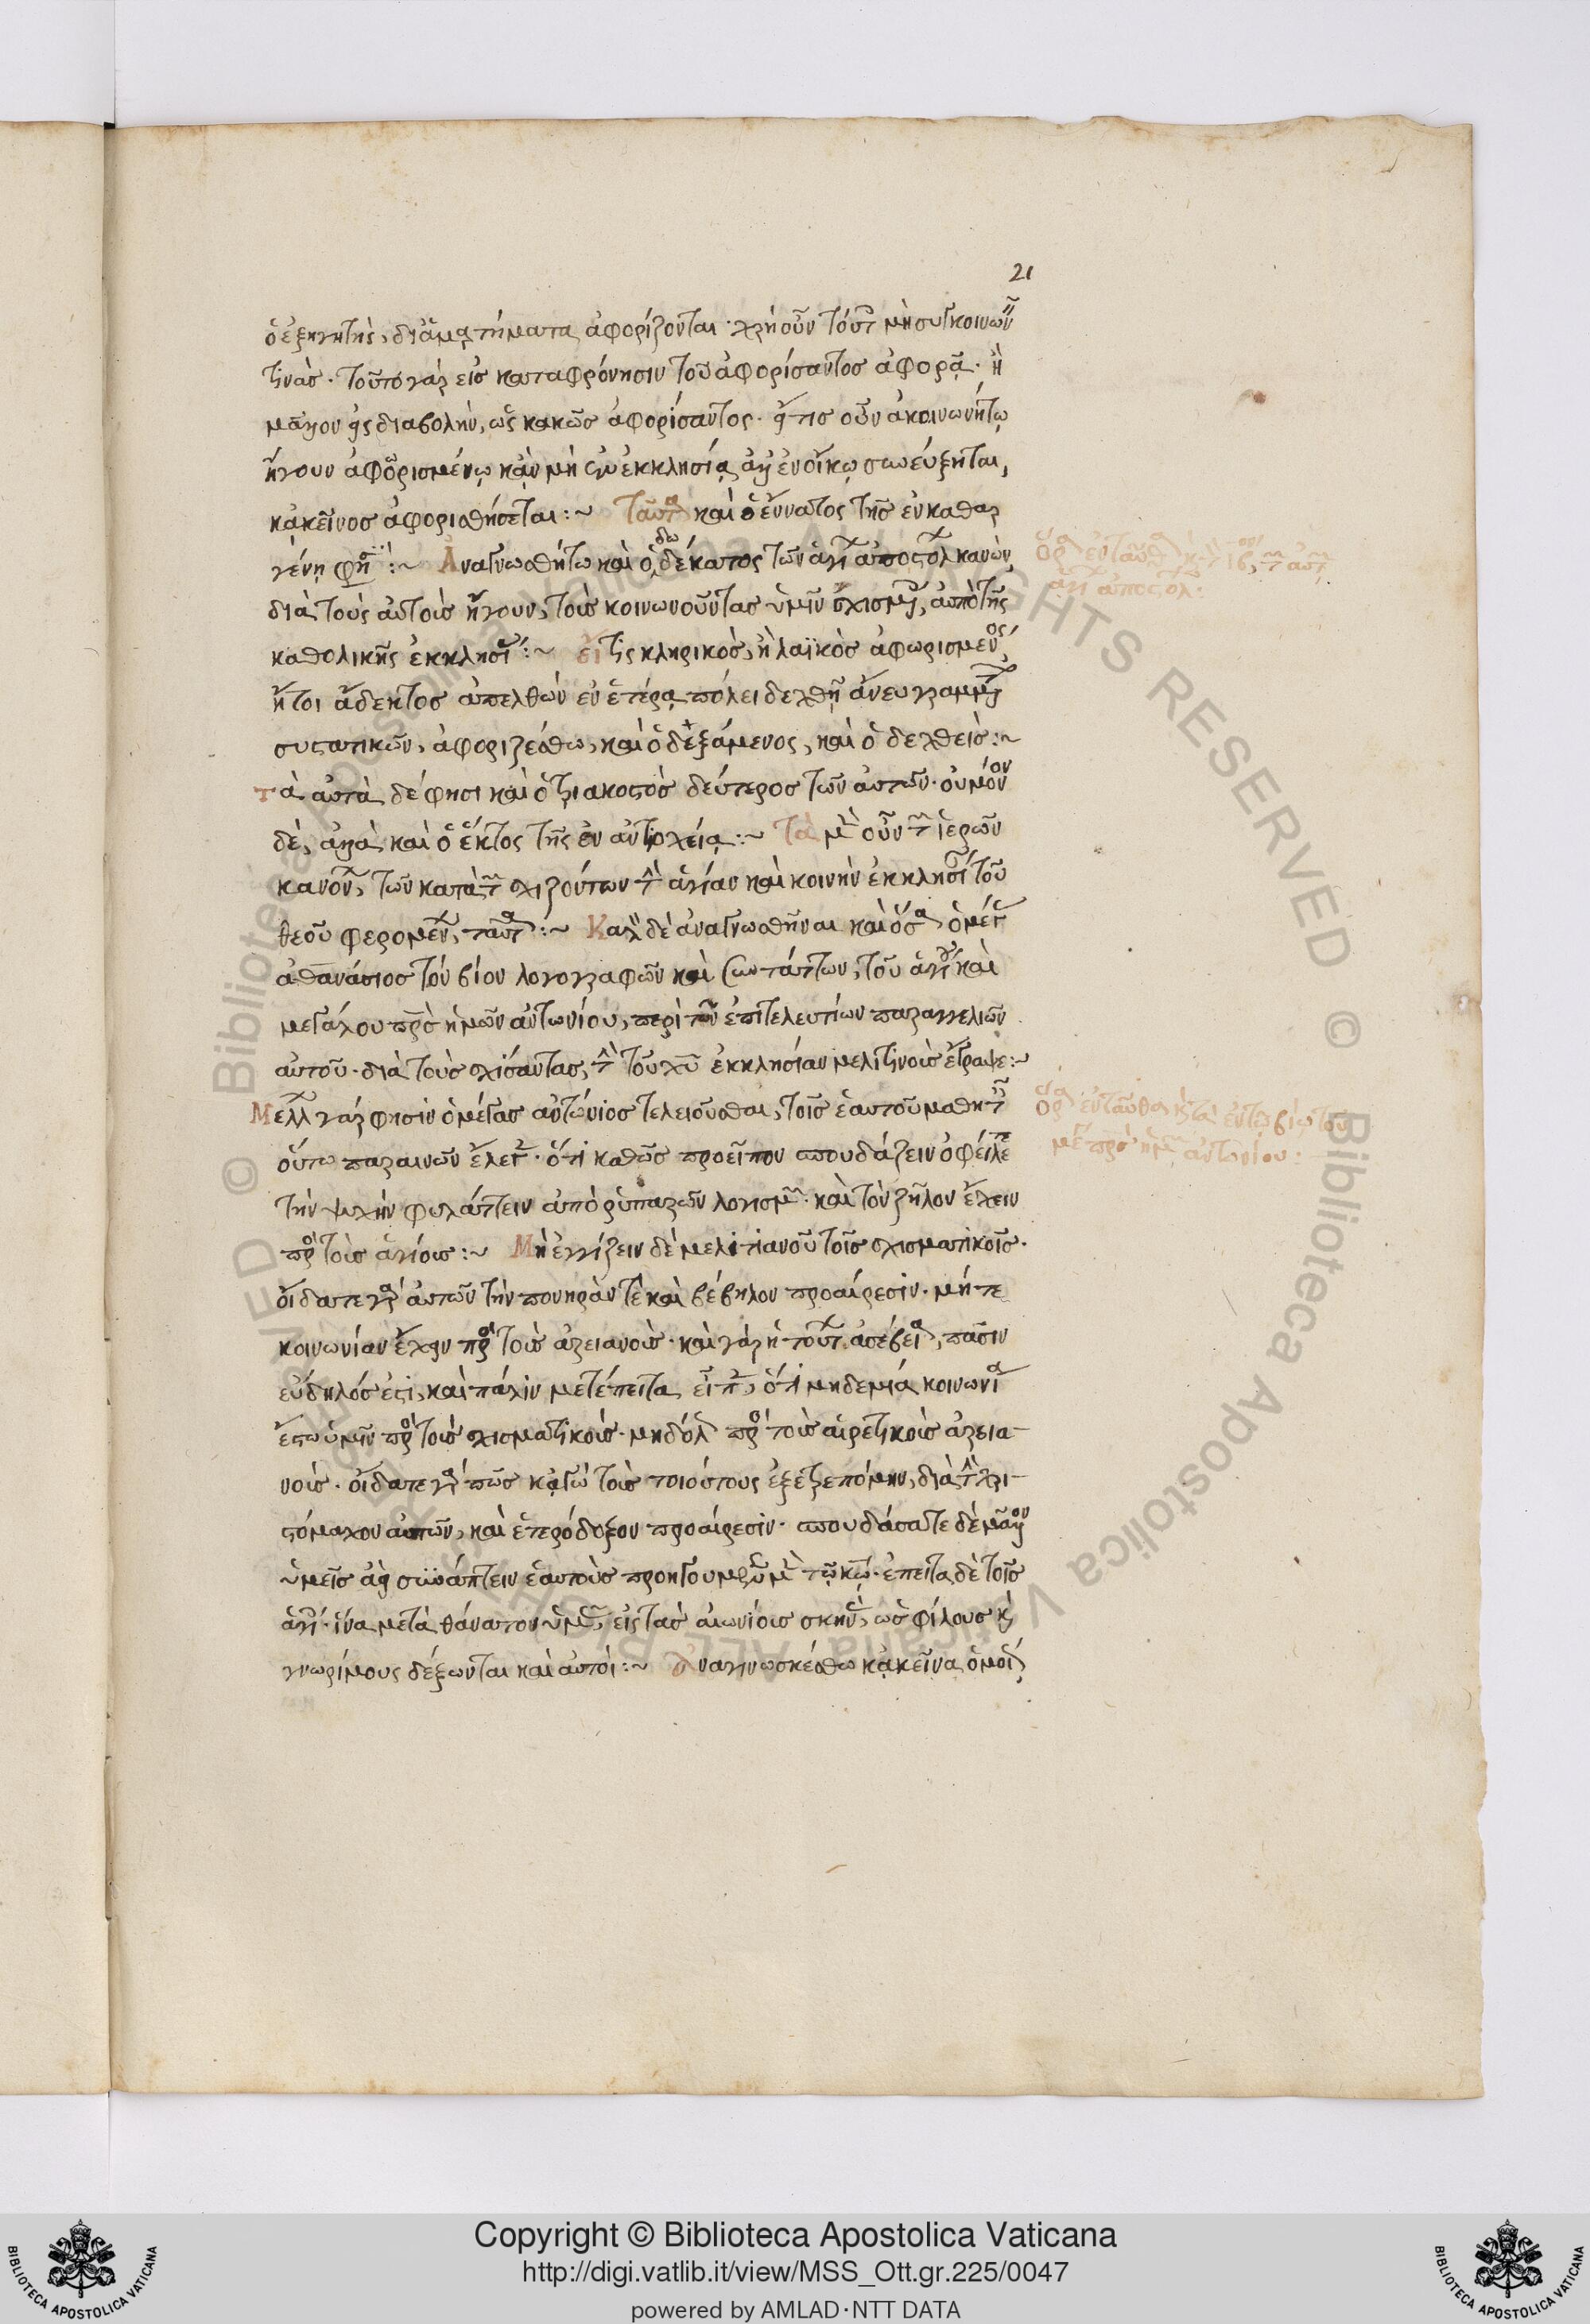 21
ὁ ἐξηγητὴς, δι' ἁμαρτήματα ἀφορίζονται· χρὴ οὖν τούτοις μὴ συγκοινωνεῖν
τινάσ· τοῦτο γὰρ εἰσ καταφρόνησιν τοῦ ἀφορίσαντοσ ἀφορᾷ· ἢ
μᾶλλον εἰς διαβολὴν, ὡς κακῶσ ἀφορίσαντος· εἴ τισ οὖν ἀκοινωνήτῳ
ἤγουν ἀφορισμένῳ κἂν μὴ ἐν ἐκκλησίᾳ ἀλλ' ἐν οἴκῳ συνεύξηται,
κἀκεῖνοσ ἀφορισθήσεται :~ Ταῦτα καὶ ὁ ἔννατος τῆσ ἐν καθαρ
γένῃ φησὶ :~ Ἀναγνωσθήτω καὶ ὁ δωδέκατος τῶν ἁγίων ἀποστόλων κανὼν,
διὰ τοὺς αὐτοῖσ ἤγουν, τοῖσ κοινωνοῦντας ὑμῖν σχισματικοῖς, ἀπὸ τῆς
καθολικῆς ἐκκλησίας :~ εἴ τις κληρικὸσ, ἢ λαϊκὸσ ἀφωρισμένος,
ἤτοι ἄδεκτοσ ἀπελθὼν ἐν ἑτέρᾳ πόλει δεχθῇ ἄνευ γραμμάτων
συστατικῶν, ἀφοριζέσθω, καὶ ὁ δεξάμενος, καὶ ὁ δεχθεὶσ :~
τὰ αὐτὰ δέ φησι καὶ ὁ τριακοστὸσ δεύτεροσ τῶν αὐτῶν· οὐ μόνον
δὲ, ἀλλὰ καὶ ὁ ἕκτος τῆς ἐν ἀντιοχείᾳ :~ Τὰ μὲν οὖν τῶν ἱερῶν
κανόνων, τῶν κατὰ τῶν σχιζόντων τὴν ἁγίαν καὶ κοινὴν ἐκκλησίαν τοῦ
θεοῦ φερομένων, ταῦτα :~ Καλὸν δὲ ἀναγνωσθῆναι καὶ ὅσα, ὁ μέγας
ἀθανάσιοσ τὸν βίον λογογραφῶν καὶ συντάττων, τοῦ ἁγίου καὶ
μεγάλου πρὸσ ἡμῶν ἀντωνίου, περὶ τῶν ἐπιτελευτίων παραγγελιῶν
αὐτοῦ· διὰ τοὺσ σχίσαντας, τὴν τοῦ χυ ἐκκλησίαν μελιτινοὺσ ἔγραψε :~
Μέλλων γάρ φησὶν ὁ μέγασ ἀντώνιοσ τελειοῦσθαι, τοῖσ ἑαυτοῦ μαθηταῖς
οὕτω παραινῶν ἔλεγεν· ὅτι καθὼσ προεῖπον σπουδάζειν ὀφείλετε
τὴν ψυχὴν φυλάττειν ἀπὸ ῥυπαρῶν λογισμῶν· καὶ τὸν ζῆλον ἔχειν
πρὸς τοὺσ ἁγίουσ :~ Μὴ ἐγγίζειν δὲ μελιτιανοῦ τοῖσ σχισματικοῖσ·
οἴδατε γὰρ αὐτῶν τὴν πονηράν τε καὶ βέβηλον προαίρεσιν· μή τε
κοινωνίαν ἔχειν πρὸς τοὺσ ἀρειανοὺσ· καὶ γὰρ ἡ τούτων ἀσέβεια, πᾶσιν
εὔδηλόσ ἐστι, καὶ πάλιν μετέπειτα εἶπεν, ὅτι μηδεμία κοινωνία
ἔστω ὑμῖν πρὸς τοὺσ σχισματικοὺσ· μηδ' ὅλως πρὸς τοὺσ αἱρετικοὺσ ἀρεια-
νούσ· οἴδατε γὰρ πῶσ κἀγὼ τοὺσ τοιούτους ἐξετρεπόμην, διὰ τὴν χρι-
στόμαχον αὐτῶν, καὶ ἑτερόδοξον προαίρεσιν· σπουδάσατε δὲ μᾶλλον
ὑμεῖσ ἀεὶ συνάπτειν ἑαυτοὺσ προηγουμένως μὲν τῷ κῳ· ἔπειτα δὲ τοῖσ
ἁγίοις· ἵνα μετὰ θάνατον ὑμᾶς, εἰς τὰσ αἰωνίουσ σκηνὰς, ὡσ φίλουσ καὶ
γνωρίμους δέξωνται καὶ αὐτοὶ :~ Ἀναγινωσκέσθω κἀκεῖνα ὁμοίως
Ὅρα ἐνταῦθα καὶ τὸν ιβον, τῶν αὐτῶν
ἁγίων ἀποστόλων·
Ὅρα ἐνταῦθα καὶ τὰ ἐν τῷ βίῳ τοῦ
μεγ πρὸσ ἡμῶν ἀντωνίου :
Copyright © Biblioteca Apostolica Vaticana
http://digi.vatlib.it/view/MSS_Ott.gr.225/0047
powered by AMLAD·NTT DATA